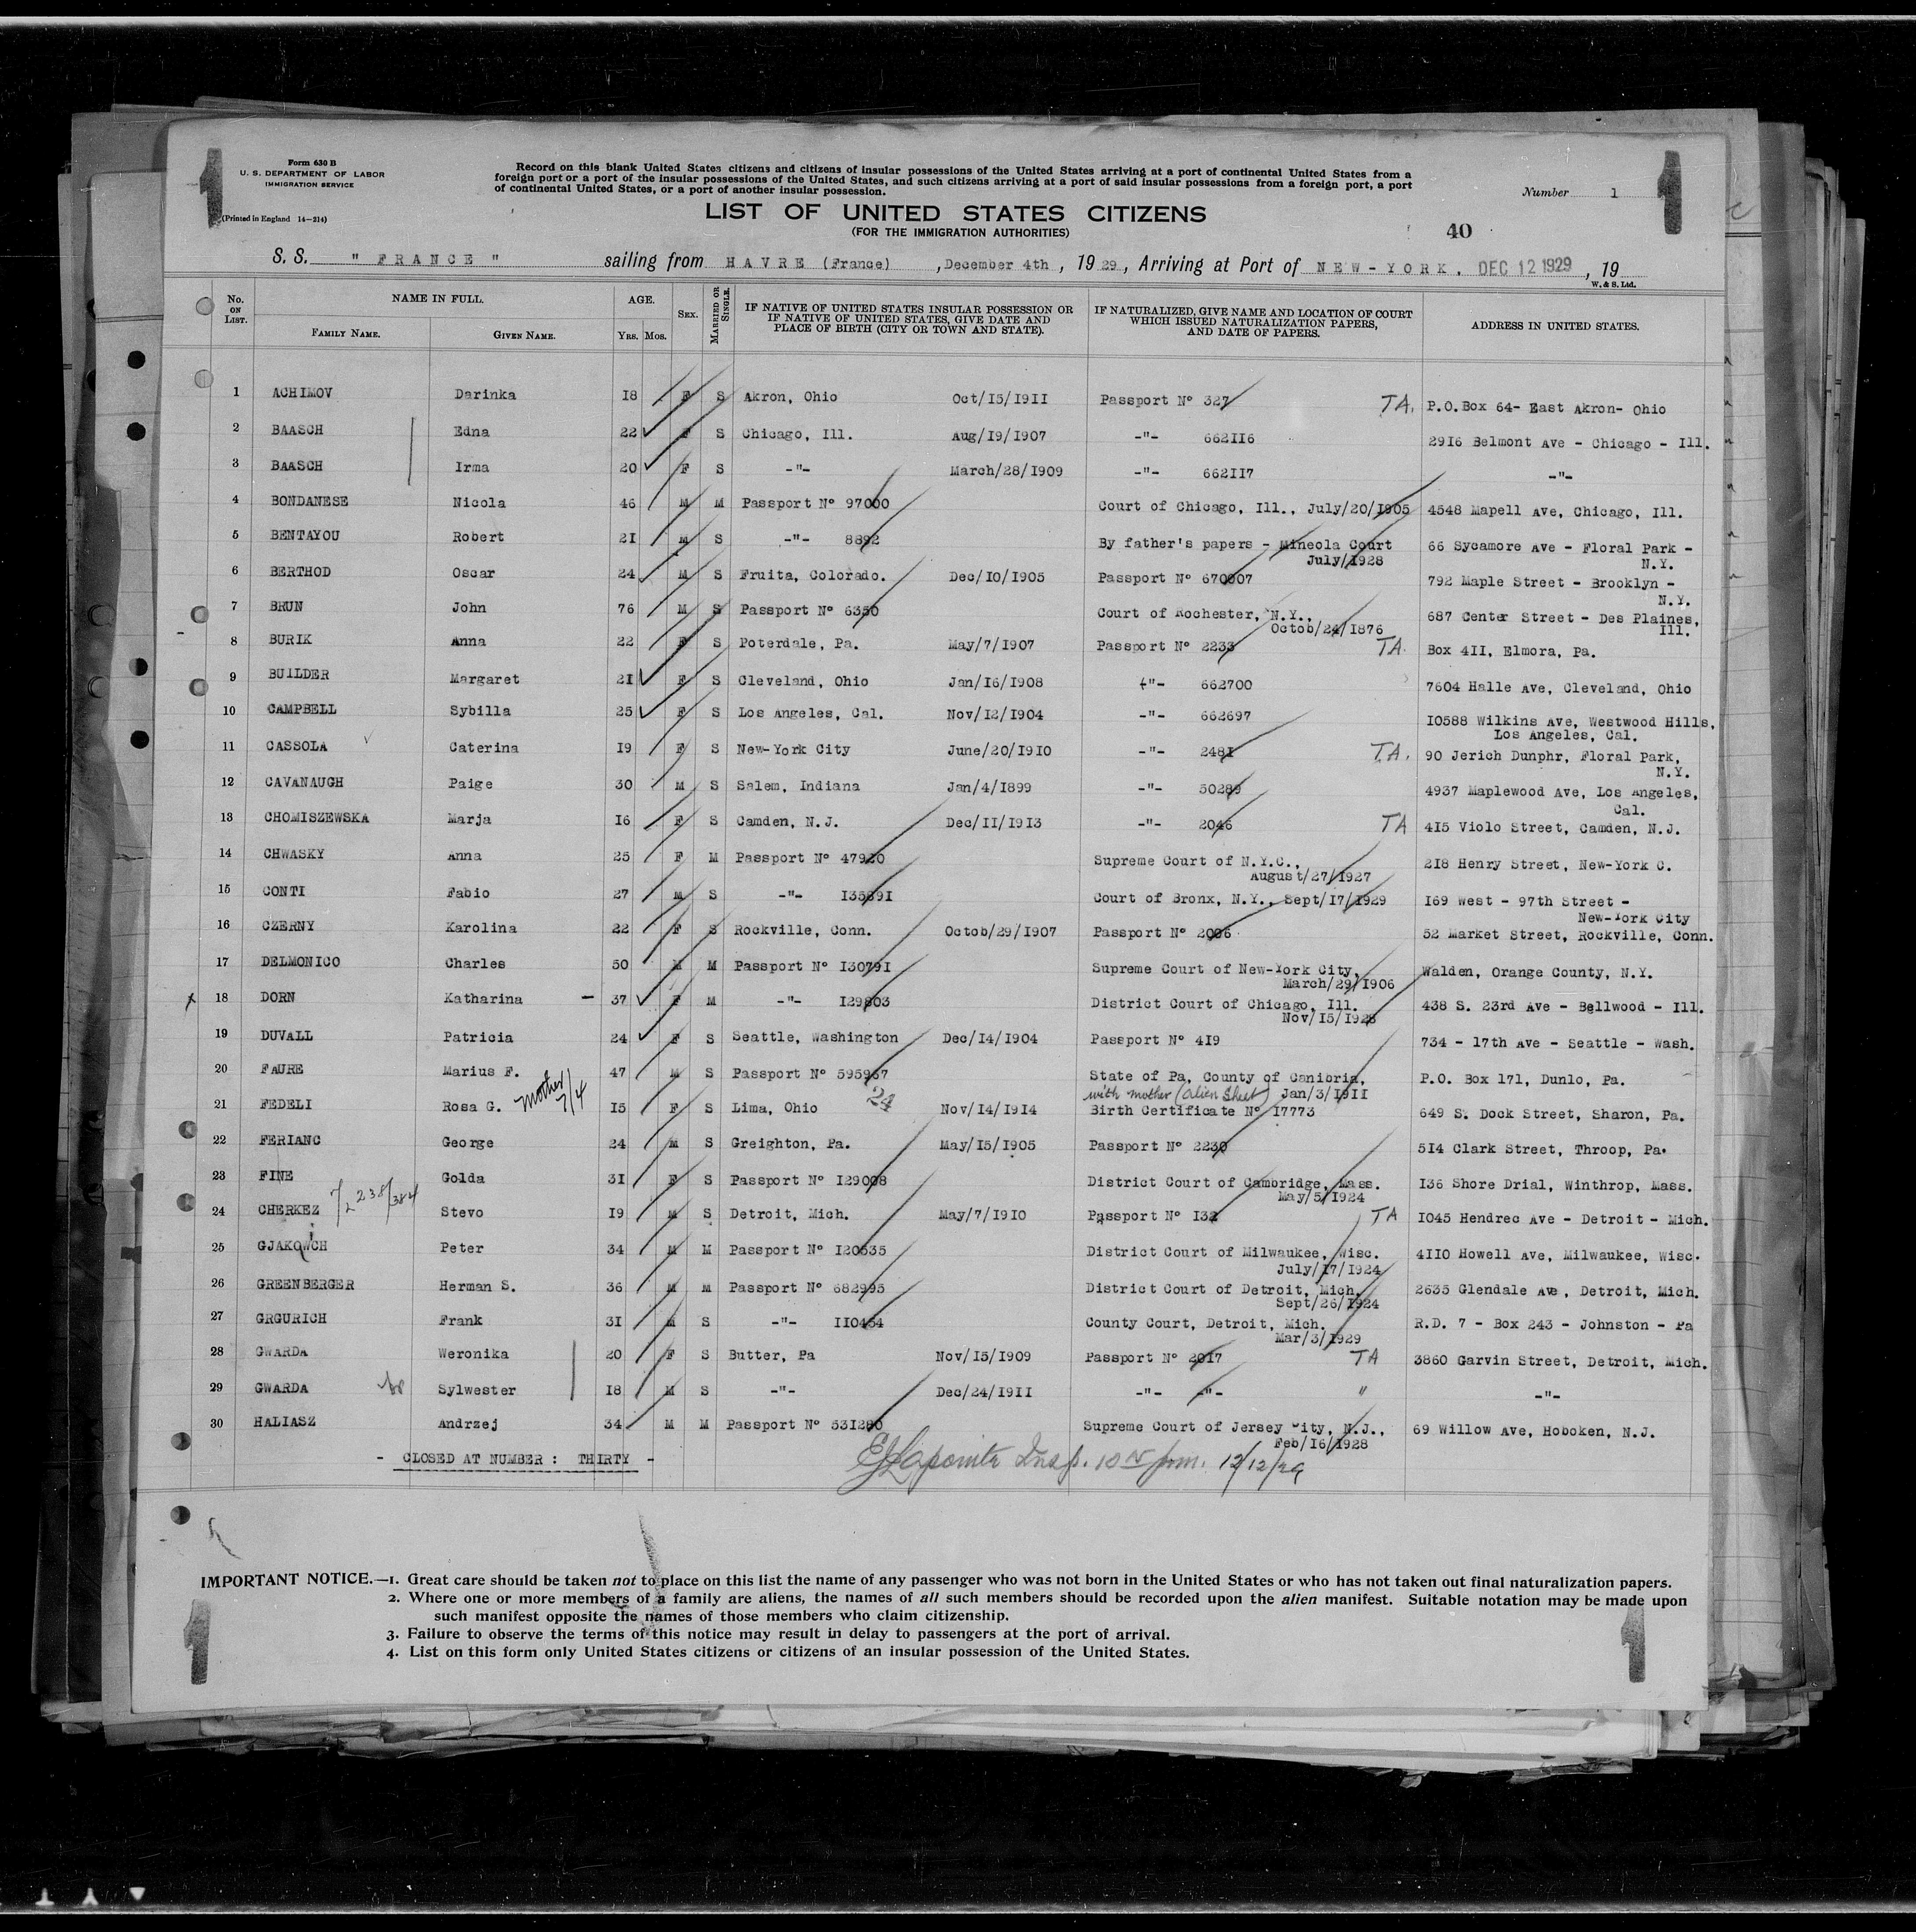 Form 630 B
U. S. DEPARTMENT OF LABOR
IMMIGRATION SERVICE
(Printed in England 14—214)
Record on this blank United States citizens and citizens of insular possessions of the United States arriving at a port of continental United States from a
foreign port or a port of the insular possessions of the United States, and such citizens arriving at a port of said insular possessions from a foreign port, a port
of continental United States, or a port of another insular possession.
Number 1
LIST OF UNITED STATES CITIZENS
(FOR THE IMMIGRATION AUTHORITIES)
40
S. S. " FRANCE " sailing from HAVRE (France), December 4th, 1929, Arriving at Port of NEW-YORK. DEC 12 1929, 19
W. & S. Ltd.
No. ON LIST. NAME IN FULL. AGE. SEX. MARRIED OR SINGLE. IF NATIVE OF UNITED STATES INSULAR POSSESSION OR IF NATIVE OF UNITED STATES, GIVE DATE AND PLACE OF BIRTH (CITY OR TOWN AND STATE). IF NATURALIZED, GIVE NAME AND LOCATION OF COURT WHICH ISSUED NATURALIZATION PAPERS, AND DATE OF PAPERS. ADDRESS IN UNITED STATES.
FAMILY NAME. GIVEN NAME. YRS. MOS.
1 ACHIMOV Darinka 18 F S Akron, Ohio Oct/15/1911 Passport Nº 327 TA. P.O.Box 64- East Akron- Ohio
2 BAASCH Edna 22 F S Chicago, Ill. Aug/19/1907 -"- 662116 2916 Belmont Ave - Chicago - Ill.
3 BAASCH Irma 20 F S -"- March/28/1909 -"- 662117 -"-
4 BONDANESE Nicola 46 M M Passport Nº 97000 Court of Chicago, Ill., July/20/1905 4548 Mapell Ave, Chicago, Ill.
5 BENTAYOU Robert 21 M S -"- 8892 By father's papers - Mineola Court 66 Sycamore Ave - Floral Park -
July/1928 N.Y.
6 BERTHOD Oscar 24 M S Fruita, Colorado. Dec/10/1905 Passport Nº 670007 792 Maple Street - Brooklyn -
N.Y.
7 BRUN John 76 M S Passport Nº 6350 Court of Rochester, N.Y., 687 Center Street - Des Plaines,
Octob/24/1876 Ill.
8 BURIK Anna 22 F S Poterdale, Pa. May/7/1907 Passport Nº 2233 TA. Box 411, Elmora, Pa.
9 BUILDER Margaret 21 F S Cleveland, Ohio Jan/16/1908 -"- 662700 7604 Halle Ave, Cleveland, Ohio
10 CAMPBELL Sybilla 25 F S Los Angeles, Cal. Nov/12/1904 -"- 662697 10588 Wilkins Ave, Westwood Hills,
Los Angeles, Cal.
11 CASSOLA Caterina 19 F S New-York City June/20/1910 -"- 2481 TA. 90 Jerich Dunphr, Floral Park,
N.Y.
12 CAVANAUGH Paige 30 M S Salem, Indiana Jan/4/1899 -"- 50289 4937 Maplewood Ave, Los Angeles,
Cal.
13 CHOMISZEWSKA Marja 16 F S Camden, N.J. Dec/11/1913 -"- 2046 TA 415 Violo Street, Camden, N.J.
14 CHWASKY Anna 25 F M Passport Nº 47920 Supreme Court of N.Y.C., 218 Henry Street, New-York C.
August/27/1927
15 CONTI Fabio 27 M S -"- 135891 Court of Bronx, N.Y., Sept/17/1929 169 West - 97th Street -
New-York City
16 CZERNY Karolina 22 F S Rockville, Conn. Octob/29/1907 Passport Nº 2006 52 Market Street, Rockville, Conn.
17 DELMONICO Charles 50 M M Passport Nº 130791 Supreme Court of New-York City, Walden, Orange County, N.Y.
March/29/1906
x 18 DORN Katharina - 37 F M -"- 129803 District Court of Chicago, Ill. 438 S. 23rd Ave - Bellwood - Ill.
Nov/15/1928
19 DUVALL Patricia 24 F S Seattle, Washington Dec/14/1904 Passport Nº 419 734 - 17th Ave - Seattle - Wash.
20 FAURE Marius F. 47 M S Passport Nº 595967 State of Pa, County of Canibria, P.O. Box 171, Dunlo, Pa.
24 with mother (alien Sheet) Jan/3/1911
21 FEDELI Rosa G. mother 7/4 15 F S Lima, Ohio Nov/14/1914 Birth Certificate Nº 17773 649 S. Dock Street, Sharon, Pa.
22 FERIANC George 24 M S Greighton, Pa. May/15/1905 Passport Nº 2230 514 Clark Street, Throop, Pa.
23 FINE Golda 31 F S Passport Nº 129008 District Court of Cambridge, Mass. 136 Shore Drial, Winthrop, Mass.
May/5/1924
24 CHERKEZ Stevo 19 M S Detroit, Mich. May/7/1910 Passport Nº 132 TA 1045 Hendrec Ave - Detroit - Mich.
25 GJAKOWCH Peter 34 M M Passport Nº 120535 District Court of Milwaukee, Wisc. 4110 Howell Ave, Milwaukee, Wisc.
July/17/1924
26 GREENBERGER Herman S. 36 M M Passport Nº 682995 District Court of Detroit, Mich. 2635 Glendale Ave, Detroit, Mich.
Sept/26/1924
27 GRGURICH Frank 31 M S -"- 110454 County Court, Detroit, Mich. R.D. 7 - Box 243 - Johnston - Pa
Mar/3/1929
28 GWARDA Weronika 20 F S Butter, Pa Nov/15/1909 Passport Nº 2017 TA 3860 Garvin Street, Detroit, Mich.
29 GWARDA Sylwester 18 M S -"- Dec/24/1911 -"- -"- " -"-
30 HALIASZ Andrzej 34 M M Passport Nº 531280 Supreme Court of Jersey City, N.J., 69 Willow Ave, Hoboken, N.J.
Feb/16/1928
- CLOSED AT NUMBER : THIRTY -
EJLapointe Insp. 12/12/29
IMPORTANT NOTICE.—1. Great care should be taken not to place on this list the name of any passenger who was not born in the United States or who has not taken out final naturalization papers.
2. Where one or more members of a family are aliens, the names of all such members should be recorded upon the alien manifest. Suitable notation may be made upon
such manifest opposite the names of those members who claim citizenship.
3. Failure to observe the terms of this notice may result in delay to passengers at the port of arrival.
4. List on this form only United States citizens or citizens of an insular possession of the United States.